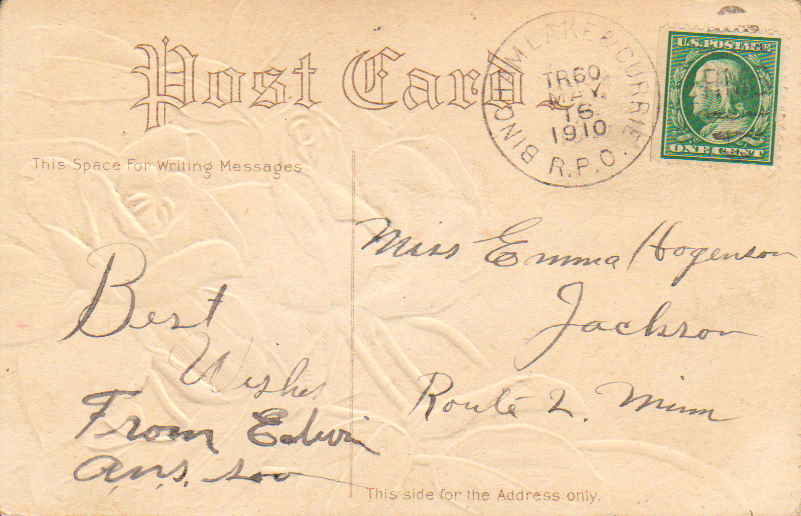 Post Card
BINGHAM LAKE & CURRIE
TR60
MAY
16
1910
R.P.O.
U.S. POSTAGE
ONE CENT
This Space For Writing Messages
Miss Emma Hogenson
Jackson
Route 2. Minn
Best
Wishes
From Edwin
ans. soo
This side for the Address only.